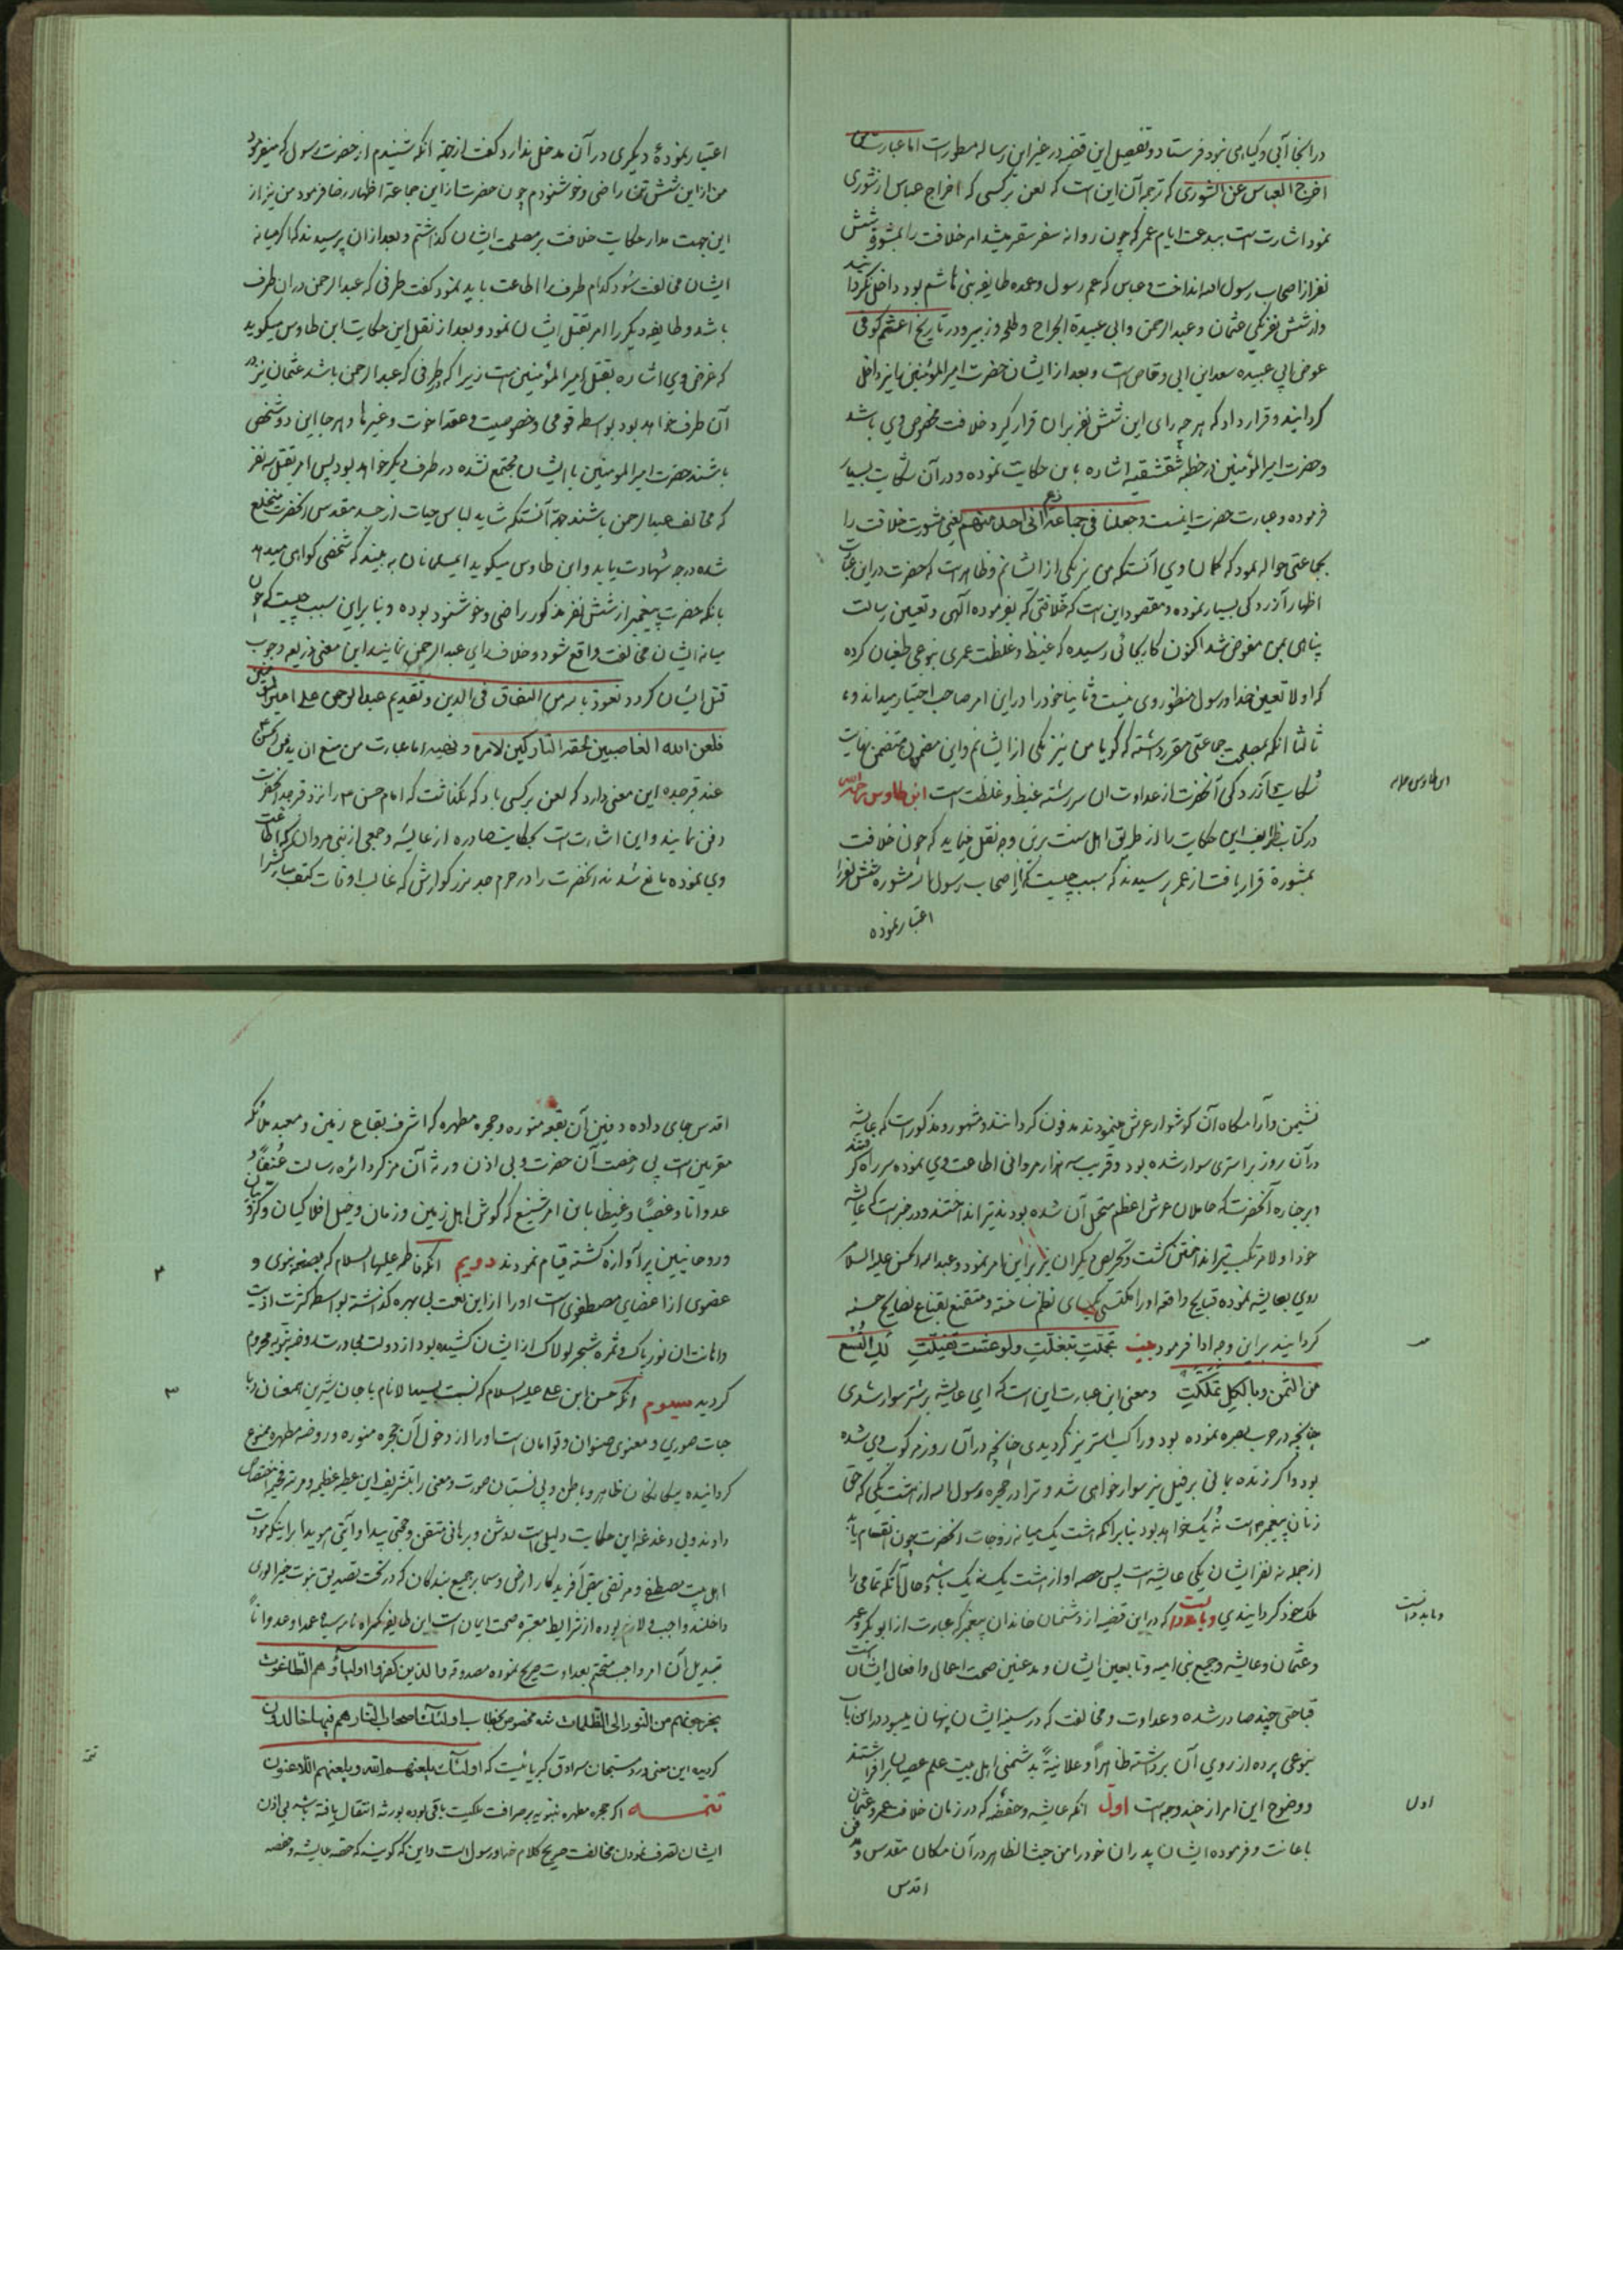 در انجا آبی و گیاهی نبود فرستاد و تفصیل این قضیه در غیر این رساله مسطور است اما عبارت
اخرج العباس عن الشوری که ترجمه آن این است که لعن بر کسی که اخراج عباس از شوری
نمود اشارت است ببدعت ایام عمر که چون روانه سفر سقر میشد امر خلافت را بمشورة شش
نفر از اصحاب رسول الله انداخت و عباس که عم رسول و عمده طایفه بنی هاشم بود داخل نکردانید
و از شش نفر یکی عثمان و عبد الرحمن و ابی عبیدة الجراح و طلحه و زبیر و در تاریخ اعثم کوفی
عوض ابی عبیده سعد ابن ابی وقاص است و بعد از ایشان حضرت امیر المؤمنین را نیز داخل
کردانید و قرار داد که هر چه رای این شش نفر بران قرار کیرد خلافت مخصوص وی باشد
و حضرت امیر المؤمنین در خطبه شقشقیه اشاره باین حکایت نموده و در آن شکایت بسیار
فرموده و عبارت حضرت اینست و جعلها فی جماعة زعم انی احد منهم یعنی مشورت خلافت را
بجماعتی حواله نمود که کمان وی آنستکه من نیز یکی از ایشانم و ظاهر است که حضرت در این عبارت
اظهار آزردکی بسیار نموده و مقصود این است که خلافتی که بفرموده الهی و تعیین رسالت
پناهی بمن مفوض شد اکنون کار بجائی رسیده که غیظ و غلظت عمری بنوعی طغیان کرده
که اولا تعیین خدا و رسول منظور وی نیست و ثانیا خود را در این امر صاحب اختیار میداند و
ثالثا انکه بمصلحت جماعتی مقرر داشته که کویا من نیز یکی از ایشانم و این مضمون متضمن نهایت
شکایت و آزردکی آنحضرت از عداوت ان سر رشته غیظ و غلظت است ابن طاوس رحمه الله
ابن طاوس علیه
در کتاب طرایف این حکایت را از طریق اهل سنت برین وجه نقل مینماید که چون خلافت
بمشورة قرار یافت از عمر پرسیدند که سبب چیست که از اصحاب رسول الله مشوره شش نفر را
اعتبار نموده
اعتبار نمودهٔ دیکری در آن مدخل ندارد کفت از جهة انکه شنیدم از حضرت رسول که میفرمود
من از این شش تن راضی و خوشنودم چون حضرت از این جماعة اظهار رضا فرمود من نیز از
این جهت مدار حکایت خلافت بر مصلحت ایشان کذاشتم و بعد از ان پرسیدند که اکر میانه
ایشان مخالفت شود کدام طرف را اطاعت باید نمود کفت طرفی که عبد الرحمن در ان طرف
باشد و طایفه دیکر را امر بقتل ایشان نمود و بعد از نقل این حکایت ابن طاوس میکوید
که غرض وی اشاره بقتل امیر المؤمنین است زیرا که طرفی که عبد الرحمن باشد عثمان نیز در
آن طرف خواهد بود بواسطه قومی و خصوصیت و عقد اخوت و غیرها و هر جا این دو شخص
باشند حضرت امیر المومنین با ایشان مجتمع نشده در طرف دیکر خواهد بود پس امر بقتل سه نفر
که مخالف عبد الرحمن باشند جهة آنستکه شاید لباس حیات از جسد مقدس آنحضرت منخلع
شده درجه شهادت یابد و ابن طاوس میکوید ای مسلمانان به بینید که شخصی کواهی میدهد
بانکه حضرت پیغمبر از شش نفر مذکور راضی و خوشنود بوده و بنابراین سبب چیست که چون
میانه ایشان مخالفت واقع شود و خلاف رای عبد الرحمن نمایند این معنی ذریعه وجوب
قتل ایشان کردد نعوذ بالله من النفاق فی الدین و تقدیم عبد الرحمن علی امیر المؤمنین
فلعن الله الغاصبین لحقه التارکین لامره و نهیه اما عبارت من منع ان یدفن الحسن
عند قبر جده این معنی دارد که لعن بر کسی باد که نکذاشت که امام حسن ع را نزد قبر جد آنحضرت
دفن نمایند و این اشارت است بحکایت صادره از عایشه و جمعی از بنی مروان که اطاعت
وی نموده مانع شدند انحضرت را در حرم جد بزرکوارش که غالب اوقات کتف مبارکش را
نشیمن و آرامکاه آن کوشوار عرش مینمودند مدفون کردانند و مشهور و مذکور است که عایشه
در آن روز بر استری سوار شده بود و قریب سه هزار مروانی اطاعت وی نموده سر راه کرفتند
و بر جنازه آنحضرت که حاملان عرش اعظم متحمل آن شده بودند تیر انداختند و در خبر است که عایشه
خود اولا مرتکب تیر انداختن کشت و تحریص دیکران نیز بر این امر نمود و عبد الله الحسن علیه السلام
روی بعایشه نموده قبایح واقعه او را مکتسی بکسای نظم ساخته و متقنع بقناع نصایح حسنه
کردانید بر این وجه ادا فرمود بیت تجملت تبغلت و لو عشت تفیلت لک التسع
من الثمن و بالکل تملکت و معنی این عبارت این است که ای عایشه بر شتر سوار شدی
چنانچه در حرب بصره نموده بود و راکب استر نیز کردیدی چنانچه در آن روز مرکوب وی شده
بود و اکر زنده بمانی بر فیل نیز سوار خواهی شد و ترا در حجره رسول الله از هشت یکی که حق
زنان پیغمبر است نُه یک خواهد بود بنابر انکه هشت یک میانه زوجات انحضرت چون انقسام یابد
از جمله نه نفر ایشان یکی عایشه است پس حصه او از هشت یک نه یک باشد و حال آنکه تمامی را
ملک خود کردانیدی و باید دانست که در این قضیه از دشمنان خاندان پیغمبر که عبارت از ابو بکر و عمر
و باید دانست
و عثمان و عایشه و جمیع بنی امیه و تابعین ایشان و مدعیین صحت اعمال و افعال ایشان است
قباحتی چند صادر شده و عداوت و مخالفت که در سینه ایشان پنهان میبود در این باب
بنوعی پرده از روی آن برداشته ظاهراً و علانیةً بدشمنی اهل بیت علم عصیان برافراشتند
و وضوح این امر از چند وجه است اول انکه عایشه و حفصه که در زمان خلافت عمر و عثمان
اول
باعانت و فرموده ایشان پدران خود را من حیث الظاهر در آن مکان مقدس و مدفن
اقدس
اقدس جای داده دفین آن بقعه منوره و حجره مطهره که اشرف بقاع زمین و معبد ملائکه
مقربین است بی رخصت آن حضرت و بی اذن ورثه آن مرکز دائره رسالت عنفاً و
عدوانا و غصبًا و غیظا باین امر شنیع که کوش اهل زمین و زمان و خیل افلاکیان و کروبیان
و روحانیین پر آوازه کشته قیام نمودند دویم انکه فاطمه علیها السلام که بضعه نبوی و
۲
عضوی از اعضای مصطفوی است او را از این نعمت بی بهره کذاشته بواسطه کثرت اذیت
و اهانت ان نور پاک و ثمره شجر لولاک از ایشان کشیده بود از دولت مجاورت روضه نبویه محروم
کردید سیوم انکه حسن ابن علی علیه السلام که نسبت بسید الانام با جان شیرین همعنان و با
۳
جهات صوری و معنوی صنوان و توامان است او را از دخول آن حجره منوره و روضه مطهره ممنوع
کردانیده بیکانکان ظاهر و باطن و بی نسبتان صورت و معنی را بتشریف این عطیه عظیمه و مرتبه فخیمه اختصاص
دادند و بی دغدغه این حکایت دلیلی است روشن و برهانی متقن و حجتی پیدا و آیتی هویدا بر اینکه مودت
اهل بیت مصطفی و مرتضی بحق آفریدکار ارض و سما بر جمیع بندکان که در تحت تصدیق نبوت خیر الوری
داخلند واجب و لازم بوده از شرایط معتبره صحت ایمان است این طایفه کمراه نامه سیاه عمدا و عدواناً
تبدیل آن امر واجب متحتم بعداوت صریح نموده مصدوقه و الذین کفروا اولیاؤهم الطاغوت
یخرجونهم من النور الی الظلمات شده مخصوص بخطاب اولئک اصحاب النار هم فیها خالدون
کردیده این معنی ورد مستبحان سرادق کبریائیست که اولئک یلعنهم الله و یلعنهم اللاعنون
تتمه
تتمه اکر حجره مطهره نبویه بر صرافت ملکیت باقی بوده بورثه انتقال یافته باشد بی اذن
ایشان تصرف نمودن مخالفت صریح کلام خدا و رسول است و این که کویند که حصه عایشه و حفصه